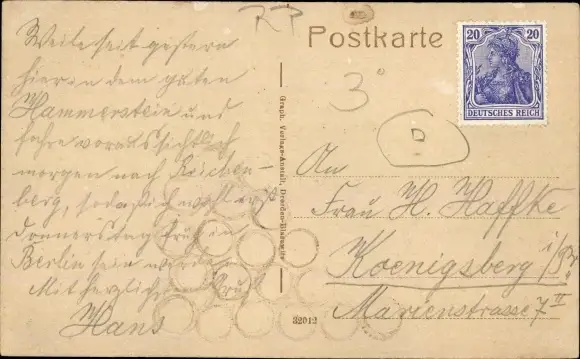 Weile seit gestern
hier in dem guten
Hammerstein und
fahre voraussichtlich
morgen nach Reichen-
berg, sodaß ich wohl erst
Donnerstag früh in
Berlin sein werde.
Mit herzlichem Gruß
Hans
Postkarte
20 20
DEUTSCHES REICH
3
D
An
Frau H. Haffke
Koenigsberg i/Pr.
Marienstrasse 7 II
Graph. Verlags-Anstalt, Dresden-Blasewitz
32012